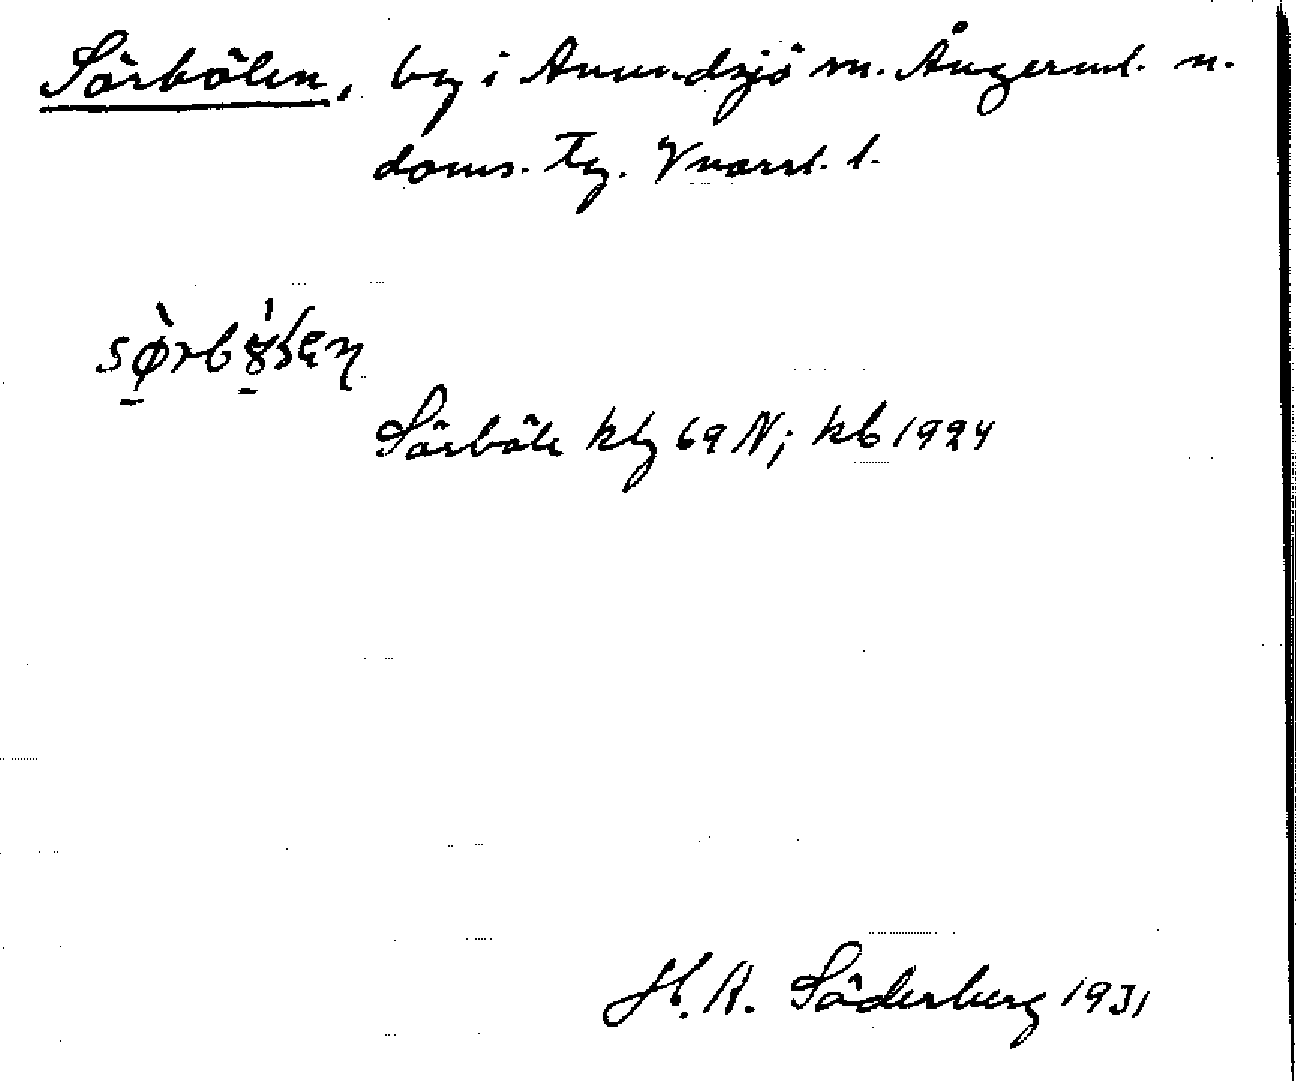 Sörbölen, by i Anundsjö sn. Ångerml. n.
doms. tg. Vnorrl. l.
Sörböle kbg 69 N; kb 1924
H. A. Söderberg 1931